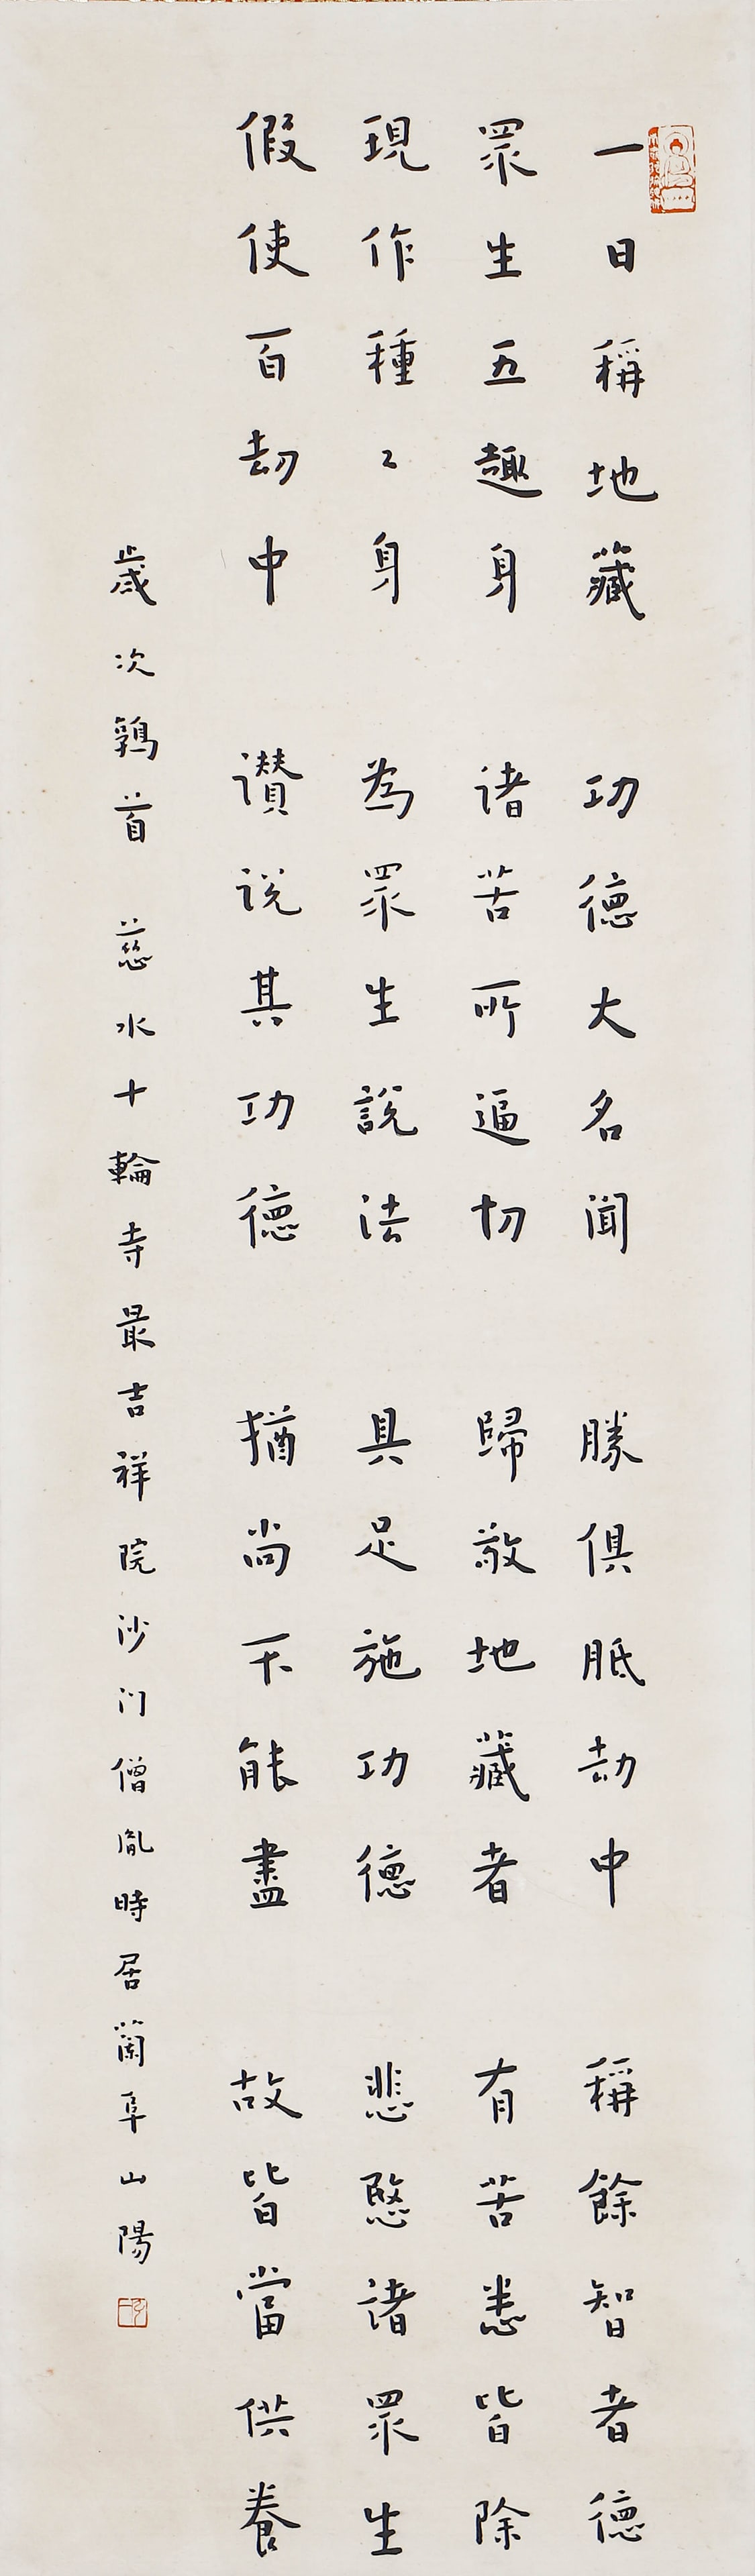 一日稱地藏 功德大名聞 勝俱胝劫中 稱餘智者德
眾生五趣身 诸苦所逼切 歸敬地藏者 有苦悉皆除
現作種〻身 為眾生說法 具足施功德 悲愍诸眾生
假使百劫中 讃说其功德 猶尚不能盡 故皆當供養
歲次鶉首 慈水十輪寺最吉祥院沙门僧胤時居蘭阜山陽